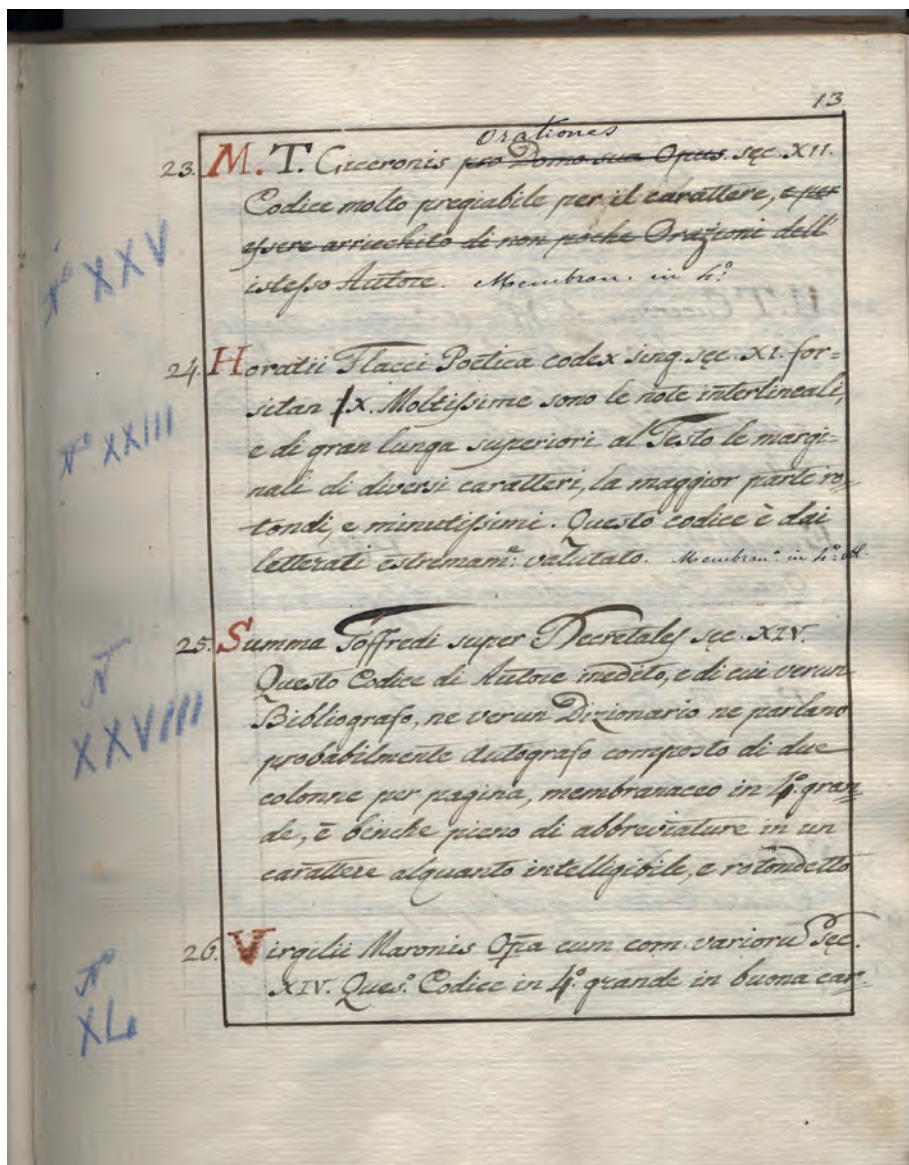 13
Orationes
23. M. T. Ciceronis pro Domo sua Opus. sęc. XII.
Codice molto pregiabile per il carattere, e per
essere arricchito di non poche Orazioni dell'
istesso Autore. Membran. in 4.°
N° XXV
24. Horatii Flacci Poetica codex sing. sęc. XI. for=
sitan X. Moltissime sono le note interlineali,
N° XXIII
e di gran lunga superiori al Testo le margi=
nali di diversi caratteri, la maggior parte ro=
tondi, e minutissimi. Questo codice è dai
letterati estremam.e valutato. Membran.° in 4.° obl.
25. Summa Goffredi super Decretales sęc. XIV.
N°
XXVIII
Questo Codice di Autore inedito, e di cui verun
Bibliografo, ne verun Dizionario ne parlano
probabilmente Autografo composto di due
colonne per pagina, membranaceo in 4.° gran=
de, è benche pieno di abbreviature in un
carattere alquanto intelligibile, e rotondetto
26. Virgilii Maronis Opa cum com. varioru Sęc.
N°
XL
XIV. Ques.° Codice in 4.° grande in buona car=